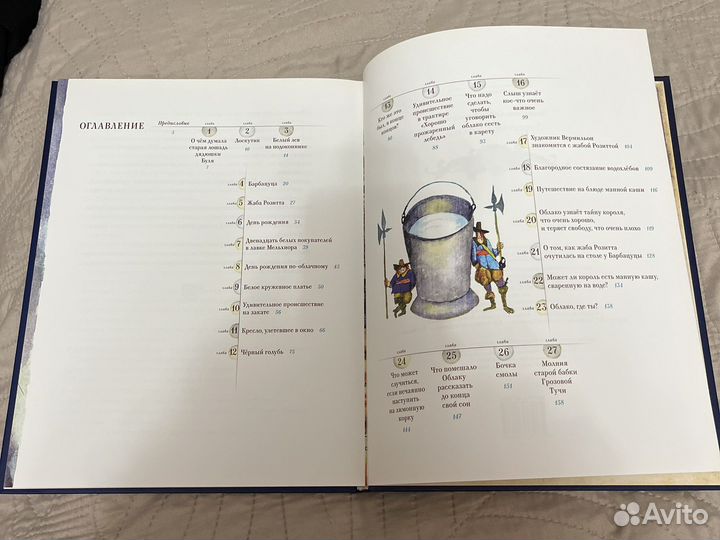 ОГЛАВЛЕНИЕ
Предисловие
5
глава
1
О чём думала
старая лошадь
дядюшки
Буля
7
глава
2
Лоскутик
10
глава
3
Белый лев
на подоконнике
14
глава 4 Барбацуца 20
глава 5 Жаба Розитта 27
глава 6 День рождения 34
глава 7 Двенадцать белых покупателей
в лавке Мельхиора 39
глава 8 День рождения по-облачному 45
глава 9 Белое кружевное платье 50
глава 10 Удивительное происшествие
на закате 56
глава 11 Кресло, улетевшее в окно 66
глава 12 Чёрный голубь 75
глава
13
Кто же это
глава
14
Удивительное
происшествие
в трактире
«Хорошо
прожаренный
лебедь»
88
глава
15
Что надо
сделать,
чтобы
уговорить
облако сесть
в карету
93
глава
16
Слыш узнаёт
кое-что очень
важное
99
глава 17 Художник Вермильон
знакомится с жабой Розиттой 104
глава 18 Благородное состязание водохлёбов 109
глава 19 Путешествие на блюде манной каши 116
глава 20 Облако узнаёт тайну короля,
что очень хорошо,
и теряет свободу, что очень плохо 119
глава 21 О том, как жаба Розитта
очутилась на столе у Барбацуцы 128
глава 22 Может ли король есть манную кашу,
сваренную на воде? 134
глава 23 Облако, где ты? 138
глава
24
Что может
случиться,
если нечаянно
наступить
на лимонную
корку
144
глава
25
Что помешало
Облаку
рассказать
до конца
свой сон
147
глава
26
Бочка
смолы
151
глава
27
Молния
старой бабки
Грозовой
Тучи
158
Avito